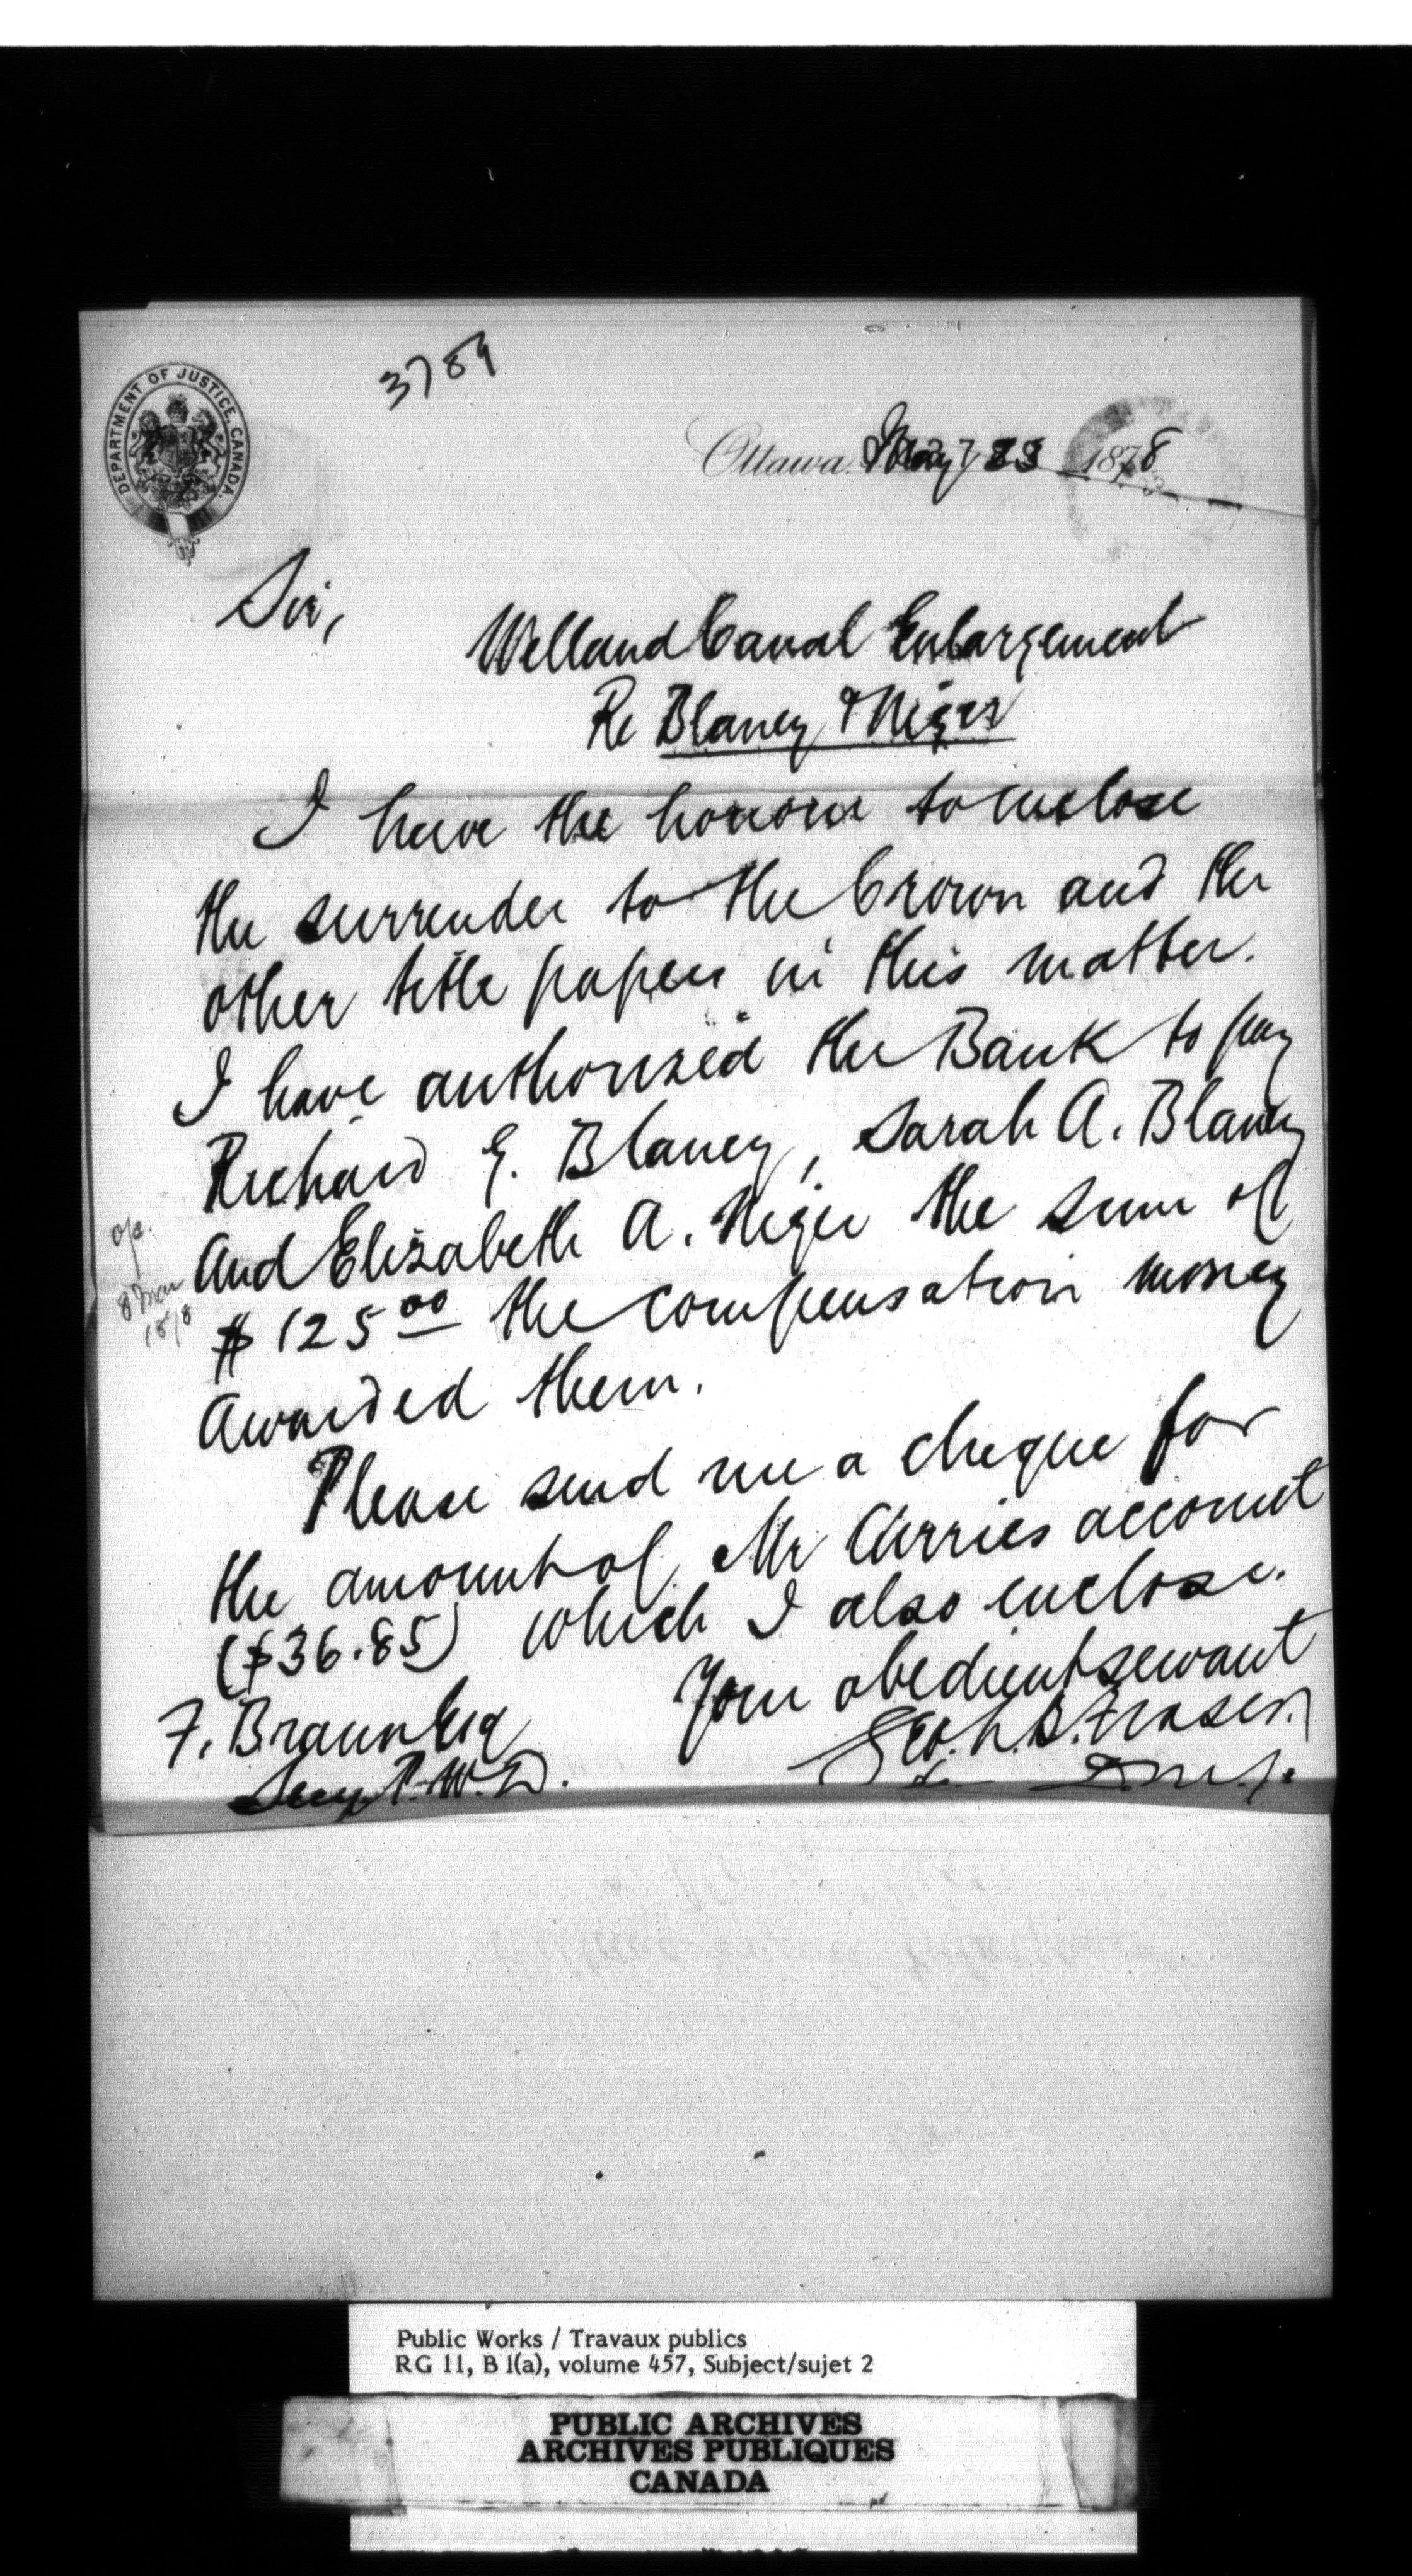 3789
DEPARTMENT OF JUSTICE, CANADA.
Ottawa 1878
Sir,
Welland Canal Enlargement
Re Blaney & Niger
I have the honour to enclose
the surrender to the Crown and the
other title papers in this matter.
I have authorized the Bank to pay
Richard E. Blaney, Sarah A. Blaney
And Elizabeth A. Niger the sum of
$125 00 the compensation money
Awarded them.
Please send me a cheque for
the amount of Mr Curries account
($36.85) which I also enclose.
Your obedient servant
F. Braun Esq
Geo. L. B. Fraser.
Secy P. W. D.
8 Mar
1878
Public Works / Travaux publics
RG 11, B 1(a), volume 457, Subject/sujet 2
PUBLIC ARCHIVES
ARCHIVES PUBLIQUES
CANADA